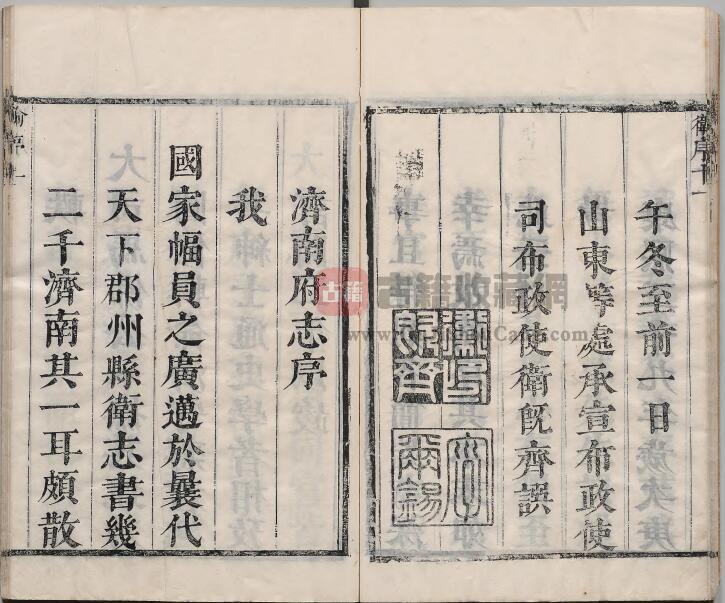 午冬至前一日
山東等處承宣布政使
司布政使衛旣齊譔
濟南府志序
我
國家幅員之廣邁於曩代
天下郡州縣衛志書幾
二千濟南其一耳頗散
古籍
古籍收藏網